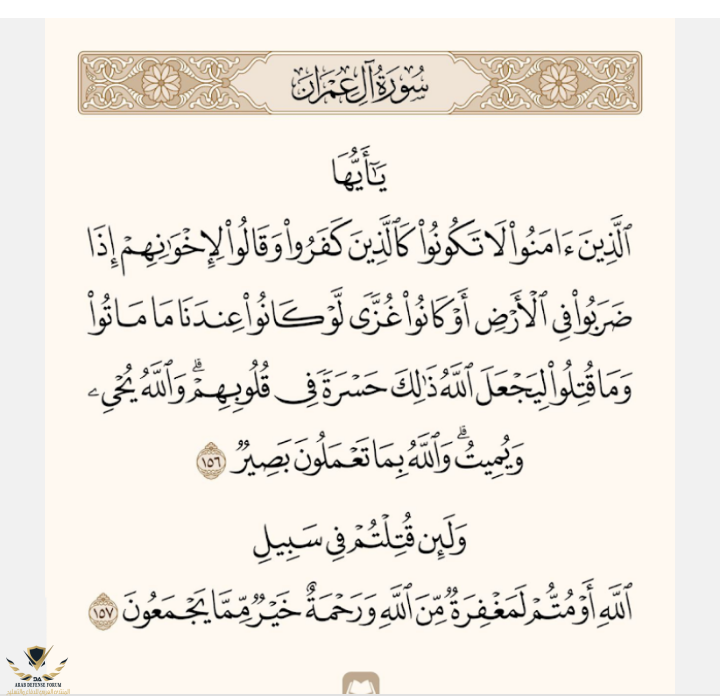 سُورَةُ آلِ عِمْرَانَ
يَٰٓأَيُّهَا
ٱلَّذِينَ ءَامَنُوا۟ لَا تَكُونُوا۟ كَٱلَّذِينَ كَفَرُوا۟ وَقَالُوا۟ لِإِخْوَٰنِهِمْ إِذَا
ضَرَبُوا۟ فِى ٱلْأَرْضِ أَوْ كَانُوا۟ غُزًّى لَّوْ كَانُوا۟ عِندَنَا مَا مَاتُوا۟
وَمَا قُتِلُوا۟ لِيَجْعَلَ ٱللَّهُ ذَٰلِكَ حَسْرَةً فِى قُلُوبِهِمْ ۗ وَٱللَّهُ يُحْىِۦ
وَيُمِيتُ ۗ وَٱللَّهُ بِمَا تَعْمَلُونَ بَصِيرٌ ١٥٦
وَلَئِن قُتِلْتُمْ فِى سَبِيلِ
ٱللَّهِ أَوْ مُتُّمْ لَمَغْفِرَةٌ مِّنَ ٱللَّهِ وَرَحْمَةٌ خَيْرٌ مِّمَّا يَجْمَعُونَ ١٥٧
DA
ARAB DEFENSE FORUM